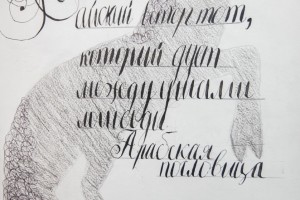 Райский ветер тот,
который дует
между ушами
лошади
Арабская
пословица